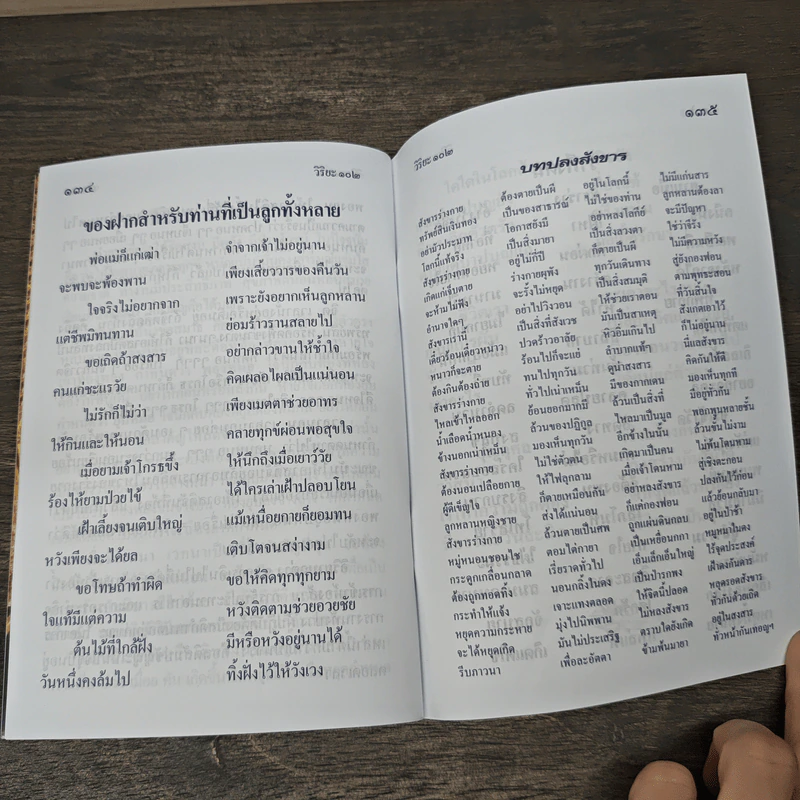 ๑๓๔
วิริยะ ๑๐๒
ของฝากสำหรับท่านที่เป็นลูกทั้งหลาย
พ่อแม่ก็แก่เฒ่า จำจากเจ้าไม่อยู่นาน
จะพบจะพ้องพาน เพียงเสี้ยววารของคืนวัน
ใจจริงไม่อยากจาก เพราะยังอยากเห็นลูกหลาน
แต่ชีพมิทนทาน ย่อมร้าวรานสลายไป
ขอเถิดถ้าสงสาร อย่ากล่าวขานให้ช้ำใจ
คนแก่ชะแรวัย คิดเผลอไผลเป็นแน่นอน
ไม่รักก็ไม่ว่า เพียงเมตตาช่วยอาทร
ให้กินและให้นอน คลายทุกข์ผ่อนพอสุขใจ
เมื่อยามเจ้าโกรธขึ้ง ให้นึกถึงเมื่อเยาว์วัย
ร้องไห้ยามป่วยไข้ ได้ใครเล่าเฝ้าปลอบโยน
เฝ้าเลี้ยงจนเติบใหญ่ แม้เหนื่อยกายก็ยอมทน
หวังเพียงจะได้ยล เติบโตจนสง่างาม
ขอโทษถ้าทำผิด ขอให้คิดทุกทุกยาม
ใจแท้มีแต่ความ หวังติดตามช่วยอวยชัย
ต้นไม้ที่ใกล้ฝั่ง มีหรือหวังอยู่นานได้
วันหนึ่งคงล้มไป ทิ้งฝั่งไว้ให้วังเวง
วิริยะ ๑๐๒
๑๓๕
บทปลงสังขาร
สังขารร่างกาย ต้องตายเป็นผี อยู่ในโลกนี้ ไม่มีแก่นสาร
ทรัพย์สินเงินทอง เป็นของสาธารณ์ ไม่ใช่ของท่าน ลูกหลานต้องลา
อย่ามัวประมาท โอกาสยังมี อย่าหลงโลกีย์ จะมีปัญหา
โลกนี้แท้จริง เป็นสิ่งมายา เป็นสิ่งลวงตา ใช่ว่าจีรัง
สังขารร่างกาย อยู่ไม่กี่ปี ก็ตายเป็นผี ไม่มีความหวัง
เกิดแก่เจ็บตาย ร่างกายผุพัง ทุกวันเดินทาง สู่ยังกองฟอน
จะห้ามไม่ฟัง จะรั้งไม่หยุด เป็นสิ่งสมมุติ ตามพุทธสอน
อำนาจใดๆ อย่าไปวิงวอน ให้ช่วยเราตอน ที่วันสิ้นใจ
สังขารเรานี้ เป็นสิ่งที่สังเวช มันเป็นสาเหตุ สังเกตเอาไว้
เดี๋ยวร้อนเดี๋ยวหนาว ปวดร้าวอาลัย หิวอิ่มเกินไป ก็ไม่อยู่นาน
หนาวก็จะตาย ร้อนไปก็จะแย่ ลำบากแท้ๆ นี่แลสังขาร
ต้องกินต้องถ่าย ทนไปทุกวัน ดูน่าสงสาร คิดกันให้ดี
สังขารร่างกาย ทั่วไปเน่าเหม็น มีของกากเดน มองเห็นทุกที่
ไหลเข้าไหลออก ย้อนยอกมากมี ล้วนเป็นสิ่งที่ มีอยู่ทั่วกัน
น้ำเลือดน้ำหนอง ล้วนของปฏิกูล ไหลมาเป็นมูล พอกพูนหลายชั้น
ข้างนอกเน่าเหม็น มองเห็นทุกวัน อีกข้างในนั้น ล้วนชั้นไม่งาม
สังขารร่างกาย ไม่ใช่ตัวตน เกิดมาเป็นคน ไม่พ้นโดนหาม
ต้องนอนเปลือยกาย ให้ไฟลุกลาม เมื่อเจ้าโดนหาม สู่เชิงตะกอน
ผู้ดีเข็ญใจ ก็ตายเหมือนกัน อย่าหลงสังขาร ปลงกันไว้ก่อน
ลูกหลานหญิงชาย ส่งได้แน่นอน ก็แค่กองฟอน แล้วย้อนกลับมา
สังขารร่างกาย ล้วนตายเป็นศพ ถูกแผ่นดินกลบ อยู่ในป่าช้า
หมู่หนอนชอนไช ตอมไต่กายา เป็นเหยื่อนกกา หมูหมาในดง
กระดูกเกลื่อนกลาด เรี่ยราดทั่วไป เอ็นเล็กเอ็นใหญ่ ไร้จุดประสงค์
ต้องถูกทอดทิ้ง นอนกลิ้งในดง เป็นปารกพง เฝ้าดงกันดาร
กระทำให้แจ้ง เจาะแทงตลอด ให้จิตนี้ปลอด หลุดรอดสังขาร
หยุดความกระหาย มุ่งไปนิพพาน ไม่หลงสังขาร ทั่วกันด้วยเถิด
จะได้หยุดเกิด มันไม่ประเสริฐ ตราบใดยังเกิด อยู่ในสงสาร
รีบภาวนา เพื่อละอัตตา ข้ามพ้นมายา ทั่วหน้ากันเทอญฯ